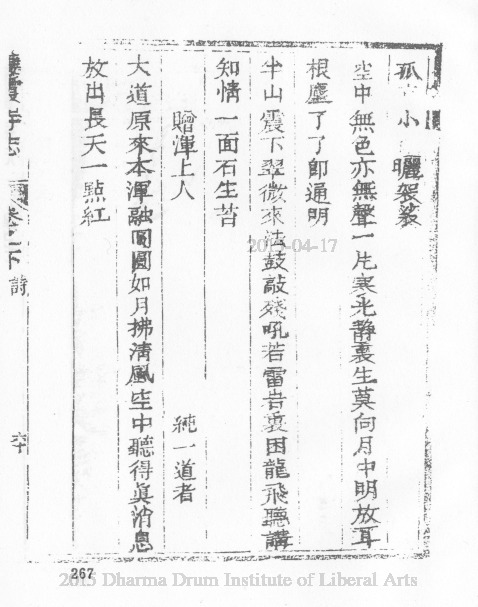 孤 小 曬袈裟
空中無色亦無聲一片寒光靜裏生莫向月中明放耳
根塵了了卽通明
半山霞下翠微來法鼓敲殘吼若雷岩裏困龍飛聽講
知情一面石生苔
贈渾上人 純一道者
大道原來本渾融圓如月拂淸風空中聽得眞消息
放出長天一點紅
棲霞寺志 卷之下 詩 六十
267
2015-04-17
2015 Dharma Drum Institute of Liberal Arts